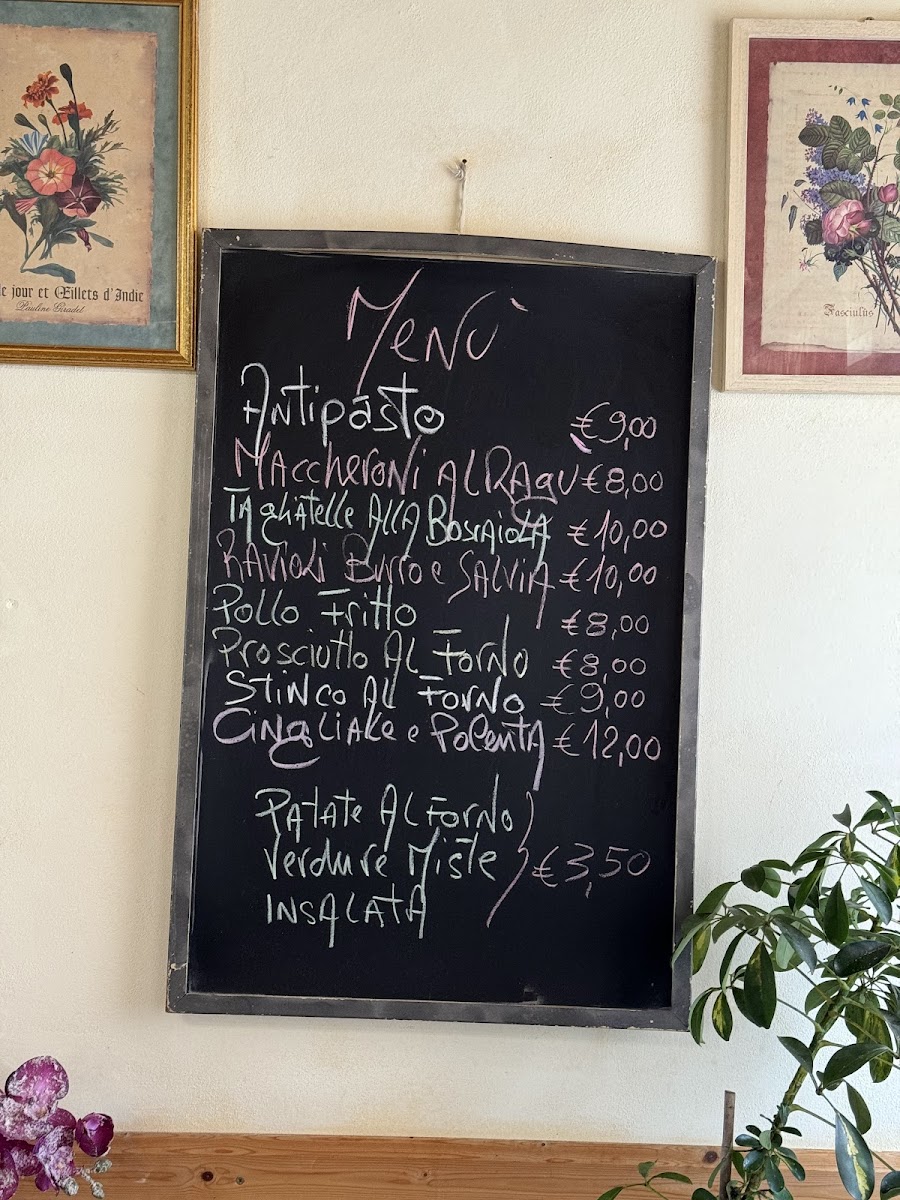 de jour et Œillets d'Indie
Pauline Giradel
Fasciulus
Menù
Antipasto €9,00
Maccheroni al Ragu €8,00
Tagliatelle alla Boscaiola €10,00
Ravioli Burro e Salvia €10,00
Pollo Fritto €8,00
Prosciutto al Forno €8,00
Stinco al Forno €9,00
Cinghiale e Polenta €12,00
Patate al Forno
Verdure Miste €3,50
Insalata